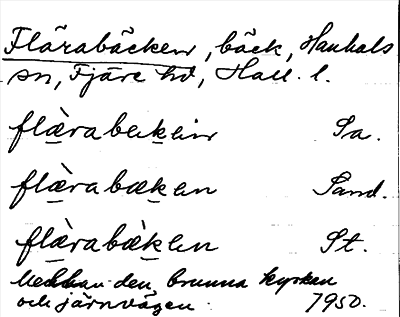 Flärabäcken, bäck, Hanhals
sn, Fjäre hd, Hall. l.
flæ̀rabekein Sa.
flæ̀rabæken Sand.
flæ̀rabæ̀ken St.
Mellan den brunna kyrkan
och järnvägen. 1950.